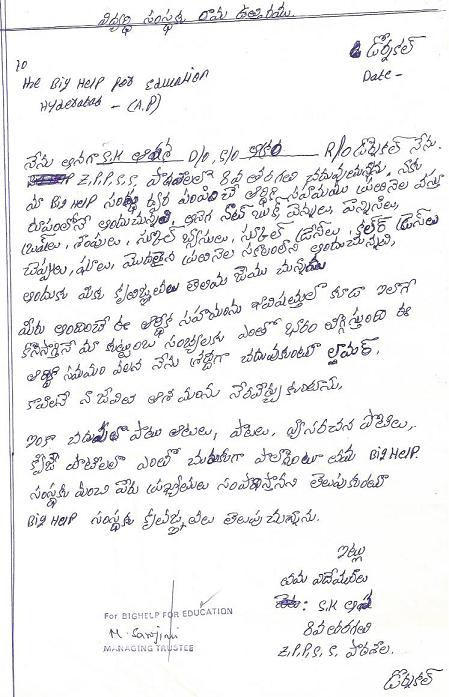 విద్యార్థి సంస్థకు రాయు ఉత్తరము.
డోర్నకల్
To
Date -
the Big Help for Education
Hyderabad - (A.P)
నేను అనగా S.K D/o, S/o R/o డోర్నకల్ నేను.
Z.P.P.S.S. పాఠశాలలో 8వ తరగతి చదువుతున్నాను. నాకు
మా Big Help సంస్థ ద్వారా పంపించే ఆర్థిక సహాయము ప్రతినెల వస్తు
రూపంలోనే అందుచున్నవి, అనగా నోట్ బుక్స్ పెన్నులు, పెన్సిలు,
స్కూల్ బ్యాగులు, స్కూల్ డ్రెస్‌లు, కలర్ డ్రెస్‌లు
చెప్పులు, షూలు, మొదలైన ప్రతినెల సక్రమంగా అందుచున్నవి,
అందుకు మీకు కృతజ్ఞతలు తెలియ చేయు చున్నాను
మీరు అందించే ఈ ఆర్థిక సహాయంను భవిష్యత్తులో కూడా ఇలాగే
మా కుటుంబ సభ్యులకు ఎంతో భారం తగ్గిస్తుంది ఈ
ఆర్థిక సహాయం వలన నేను శ్రద్ధగా చదువుకుంటూ
కావాలనే నా జీవిత ఆశయంను నేరవేర్చు కుంటాను.
ఇంకా చదువుతో పాటు ఆటలు, పాటలు, వ్యాసరచన పోటీలు,
క్విజ్ పోటీలలో ఎంతో చురుకుగా పాల్గొంటూ తమ Big HelP
సంస్థకు మంచి పేరు ప్రఖ్యాతులు సంపాదిస్తానని తెలుపుకుంటూ
Big HelP సంస్థకు కృతజ్ఞతలు తెలుపు చున్నాను.
ఇట్లు
తమ విధేయురాలు
: S.K
8వ తరగతి
Z.P.P.S.S. పాఠశాల.
డోర్నకల్
For BIGHELP FOR EDUCATION
M. Sarojini
MANAGING TRUSTEE